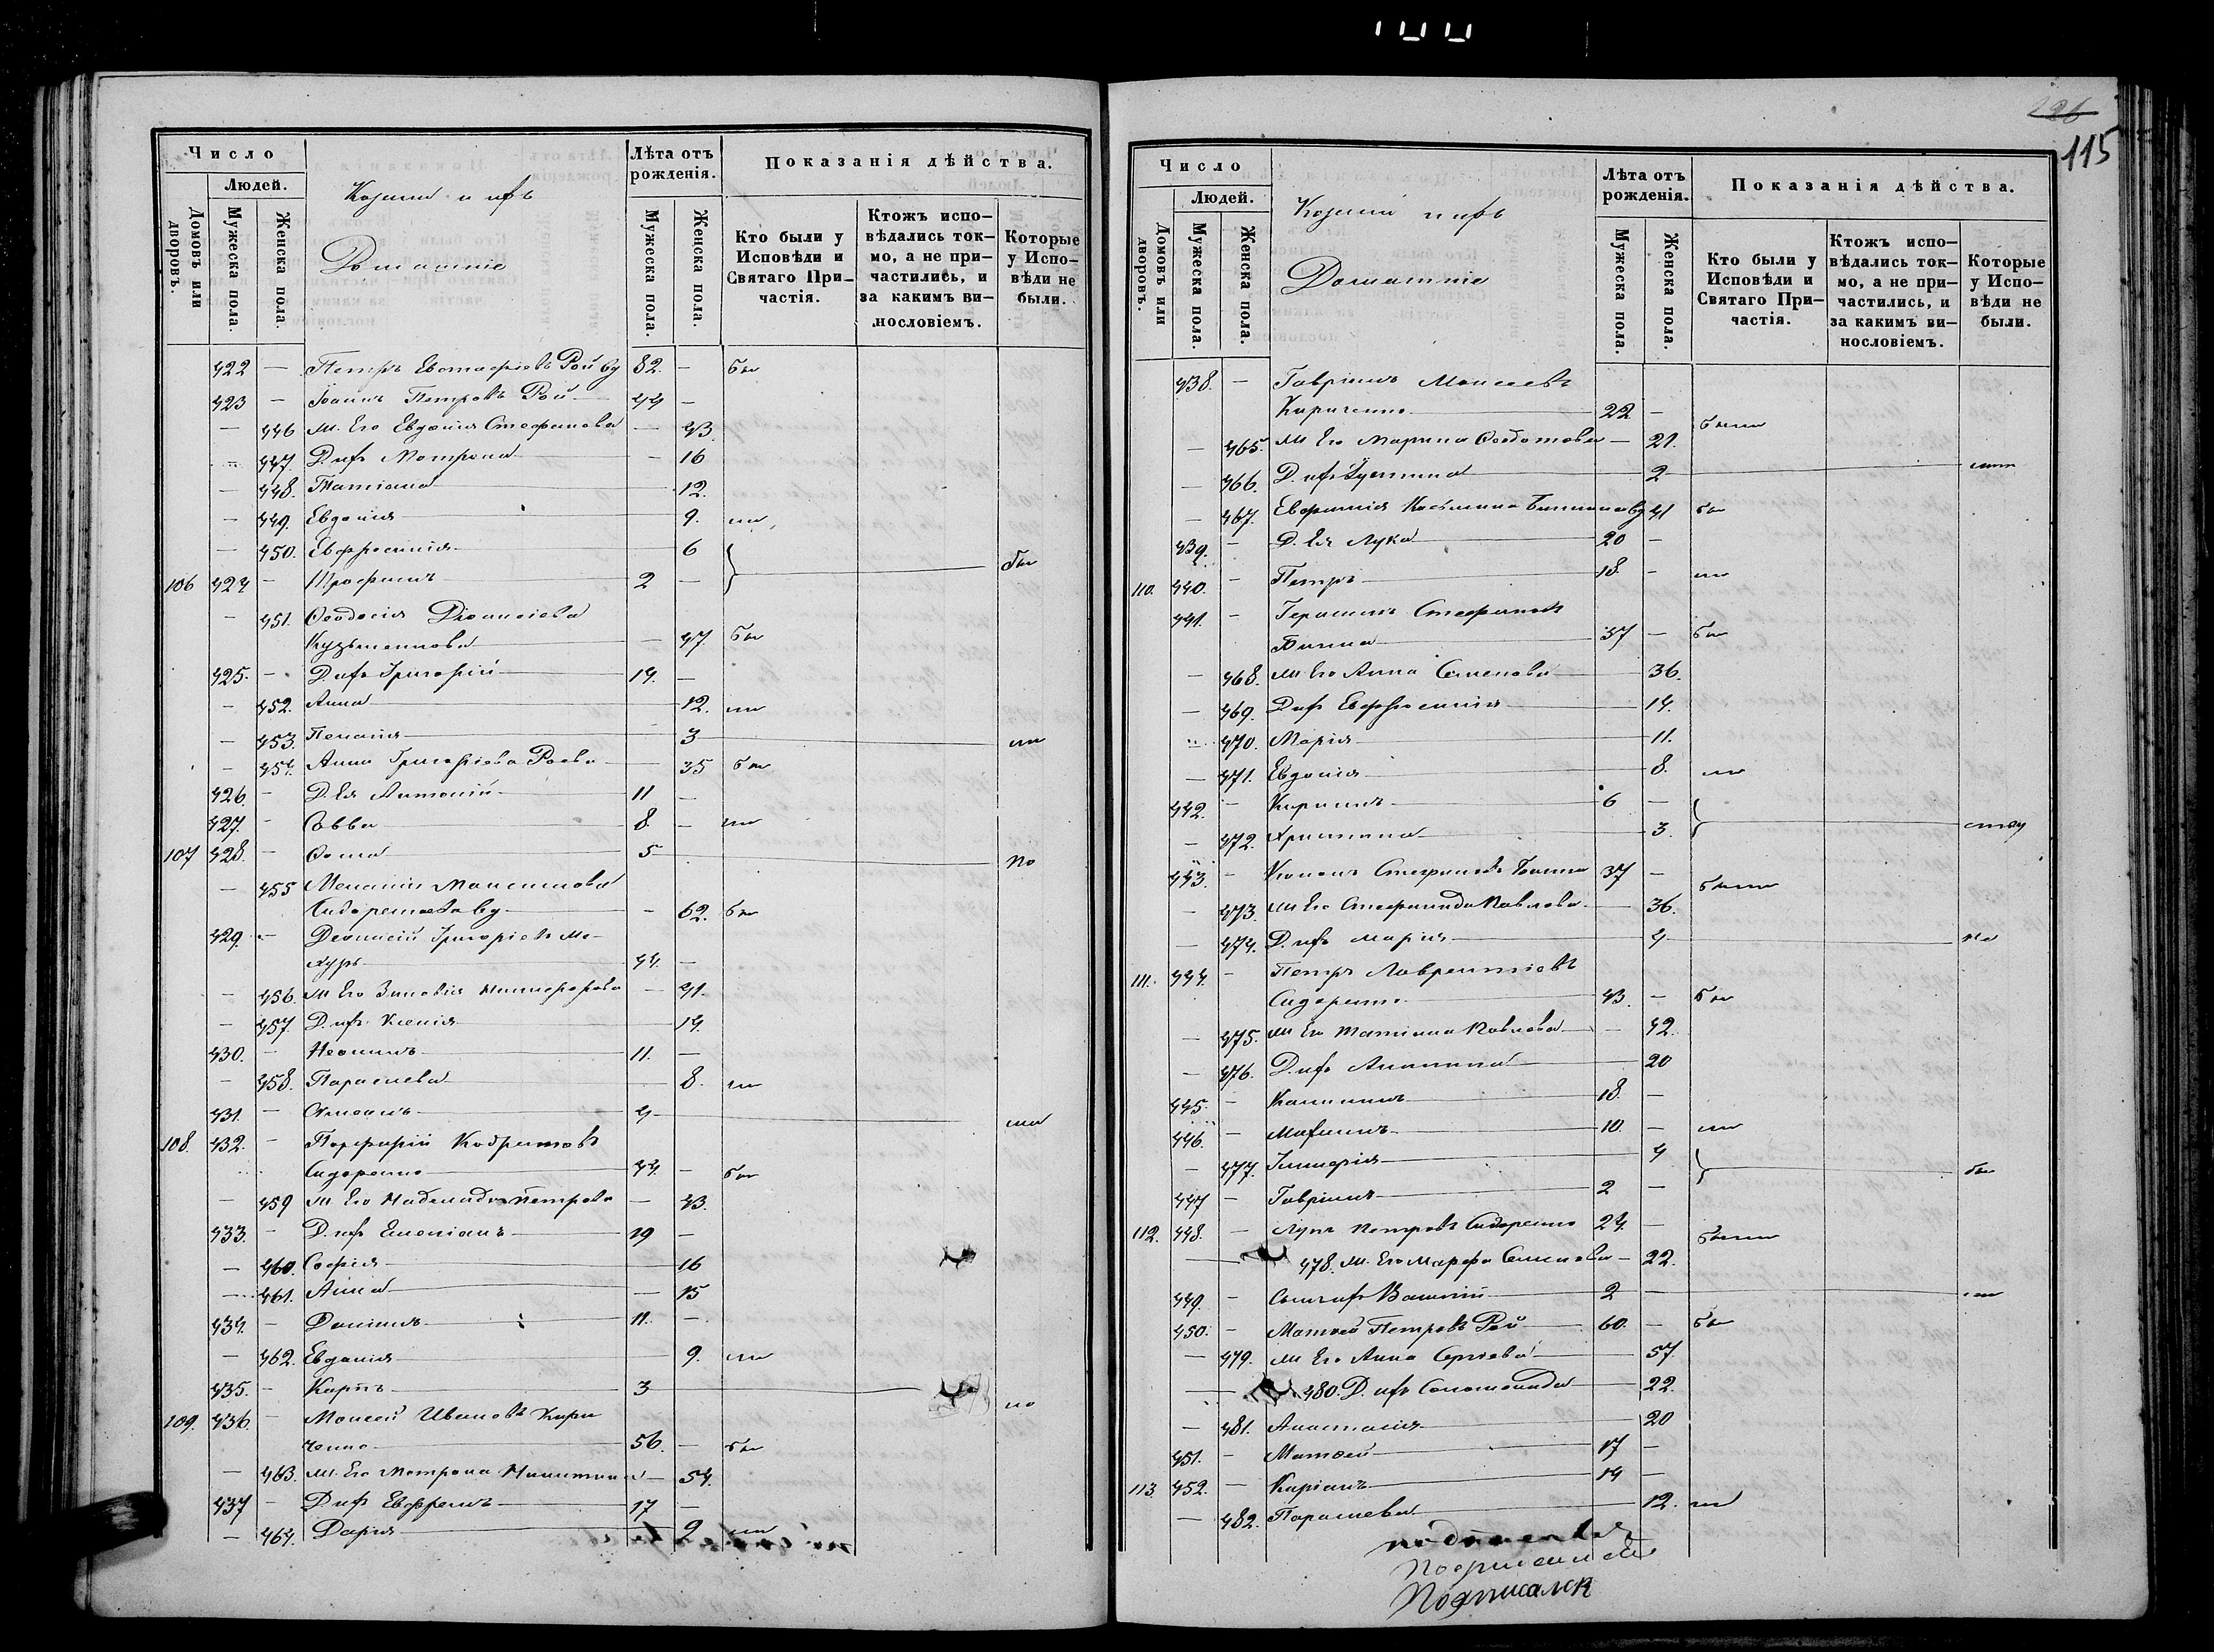 100
126
115
Число
Людей.
Домовъ или дворовъ.
Мужеска пола.
Женска пола.
Козаки и ихъ
Домашніе
Лѣта отъ рожденія.
Мужеска пола.
Женска пола.
Показанія дѣйства.
Кто были у Исповѣди и Святаго При-частія.
Ктожъ испо-вѣдались ток-мо, а не при-частились, и за какимъ ви-нословіемъ.
Которые у Испо-вѣди не были.
422 — Петръ Евстафіевъ Рой вд 82. — бы
423 — Іоаннъ Петровъ Рой 44 —
— 446 Ж. Его Евдокія Стефанова — 43.
447. Д. ихъ Матрона — 16
— 448. Татіана 12.
— 449. Евдокія 9. ли
— 450. Евфросинія 6
106 424 — Трофимъ 2 — } бы
— 451. Ѳеодосія Діонисіева
Кузьменкова — 47. бы
425. — Д. ихъ Григорій 14. —
— 452. Анна 12. ли
— 453. Пелагія 3 ли
— 454. Анна Григоріева Роева 35 бы
426. — Д. Ея Антоній 11 —
427. — Савва 8. — ли
107 428. — Ѳома 5 но
— 455 Меланія Максимова
Сидоренкова вд — 62. бы
429. — Діонисій Григоріевъ Ма-
хуръ 44. —
— 456. Ж Его Зиновія Никифорова — 41.
— 457. Д. ихъ Ксенія 14.
430. — Іоакимъ 11. —
— 458. Параскева 8. ли
431. — Стефанъ 4 ли
108. 432. — Порфирій Кодратовъ
Сидоренко 44. — бы
— 459 Ж. Его Надежда Петрова — 43.
433. — Д. ихъ Емеліанъ 19 —
— 460. Софія 16
— 461. Анна 15
434. — Даніилъ 11. —
— 462. Евдокія 9. ли
435. — Карпъ 3 но
109. 436. — Моисей Ивановъ Кири
ченко 56. — бы
— 463. Ж. Его Матрона Никитина — 54.
437 — Д. ихъ Евфремъ 17 —
— 464. Дарія 9 ли
Число
Людей.
Домовъ или дворовъ.
Мужеска пола.
Женска пола.
Козаки и ихъ
Домашніе
Лѣта отъ рожденія.
Мужеска пола.
Женска пола.
Показанія дѣйства.
Кто были у Исповѣди и Святаго При-частія.
Ктожъ испо-вѣдались ток-мо, а не при-частились, и за какимъ ви-нословіемъ.
Которые у Испо-вѣди не были.
438. — Гавріилъ Моисеевъ
Кириченко 22 —
были
— 465. Ж Его Марина Ѳедотова — 21.
— 466. Д. ихъ Іустина 2
— 467. Евфимія Касьянова вд 41 бы
439. — Д. Ея Лука 20 —
110. 440. — Петръ 18. — ли
441. — Герасимъ Стефановъ
37 — бы
— 468. Ж Его Анна Семенова 36.
— 469. Д. ихъ Евфросинія 14.
470. Марія 11.
— 471. Евдокія 8. ли
442. — Кириллъ 6 —
— 472. Христина 3. }
443. — Кононъ Стефановъ 37 —
были
— 473. Ж Его Стефанида Павлова 36.
— 474. Д. ихъ Марія 4 не
111. 444. — Петръ Лаврентіевъ
Сидоренко 43. — бы
— 475. Ж Его Татіана Павлова — 42.
— 476. Д. ихъ Акилина 20
445. — Калиникъ 18. —
446. — Максимъ 10. — ли
— 477. Гликерія 4
447 — Гавріилъ 2 — } бы
112. 448. — Лука Петровъ Сидоренко 24. —
были
— 478. Ж. Его Марфа Семенова — 22.
449. — Сынъ ихъ Василій 2 — ли
450. — Матѳей Петровъ Рой 60. — бы
— 479. Ж Его Анна Сергіева 57.
— 480. Д. ихъ Соломонида 22.
— 481. Анастасія 20
451. — Матѳей 17 —
113. 452. — Киріакъ 14 —
— 482. Параскева 12. ли
Подписался